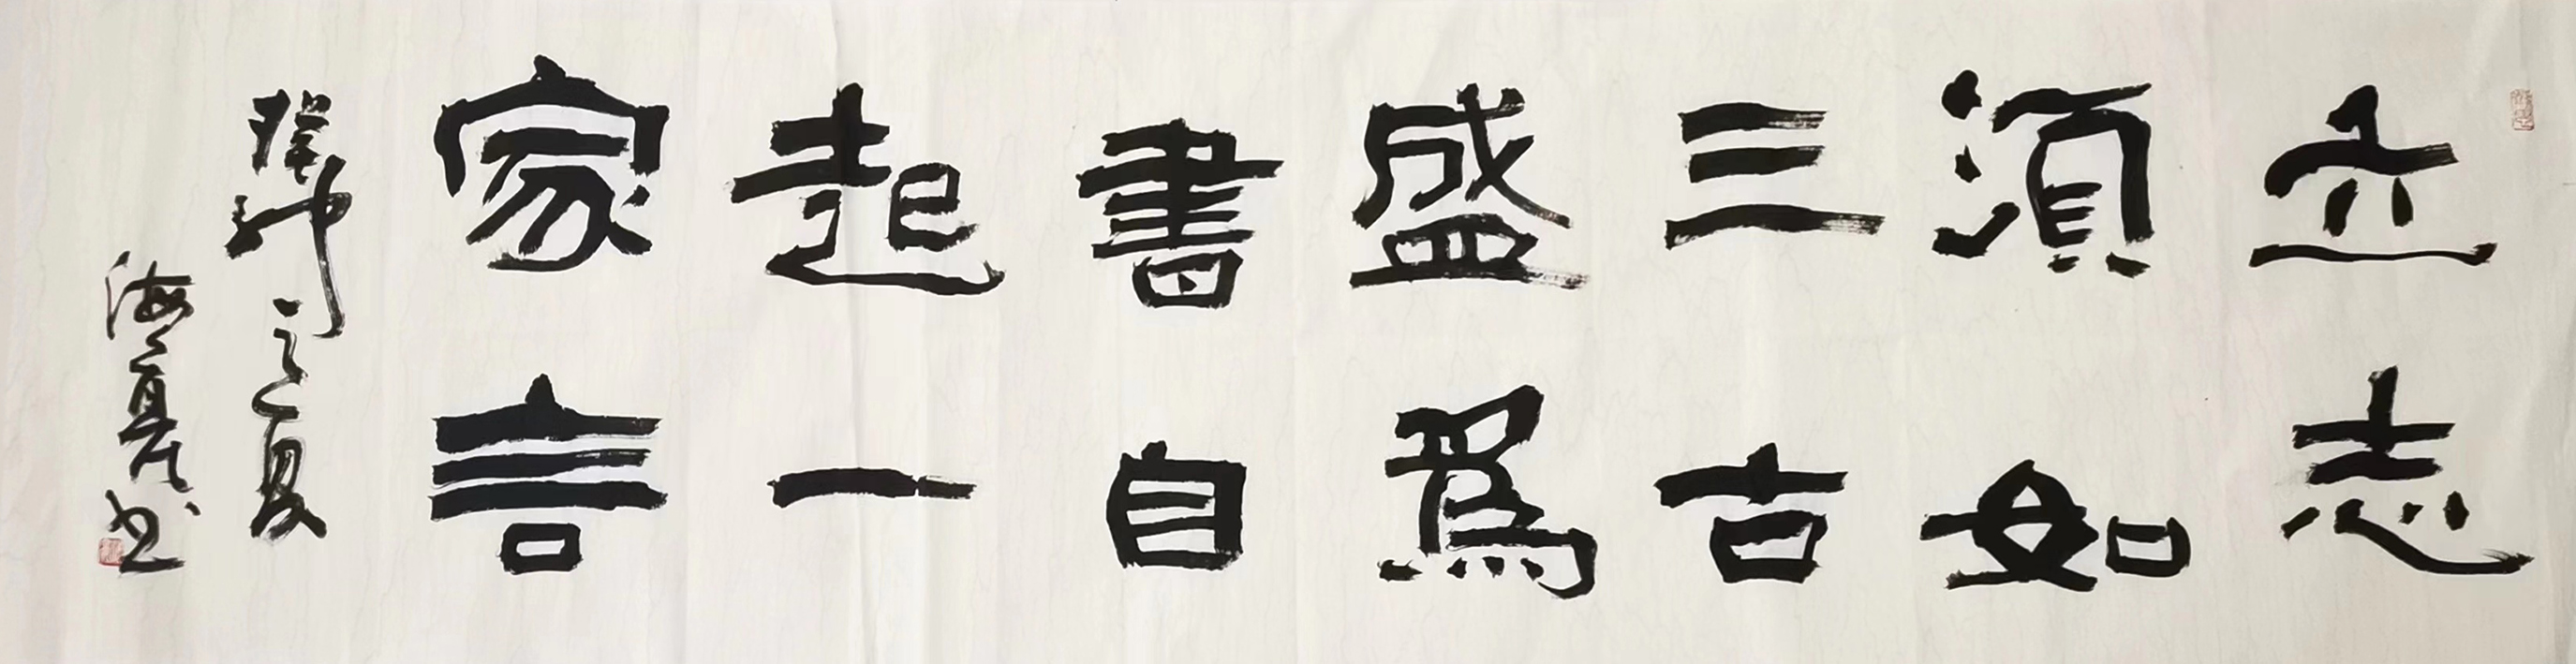 立志
須如
三古
盛為
書自
起一
家言
之夏
海亭書